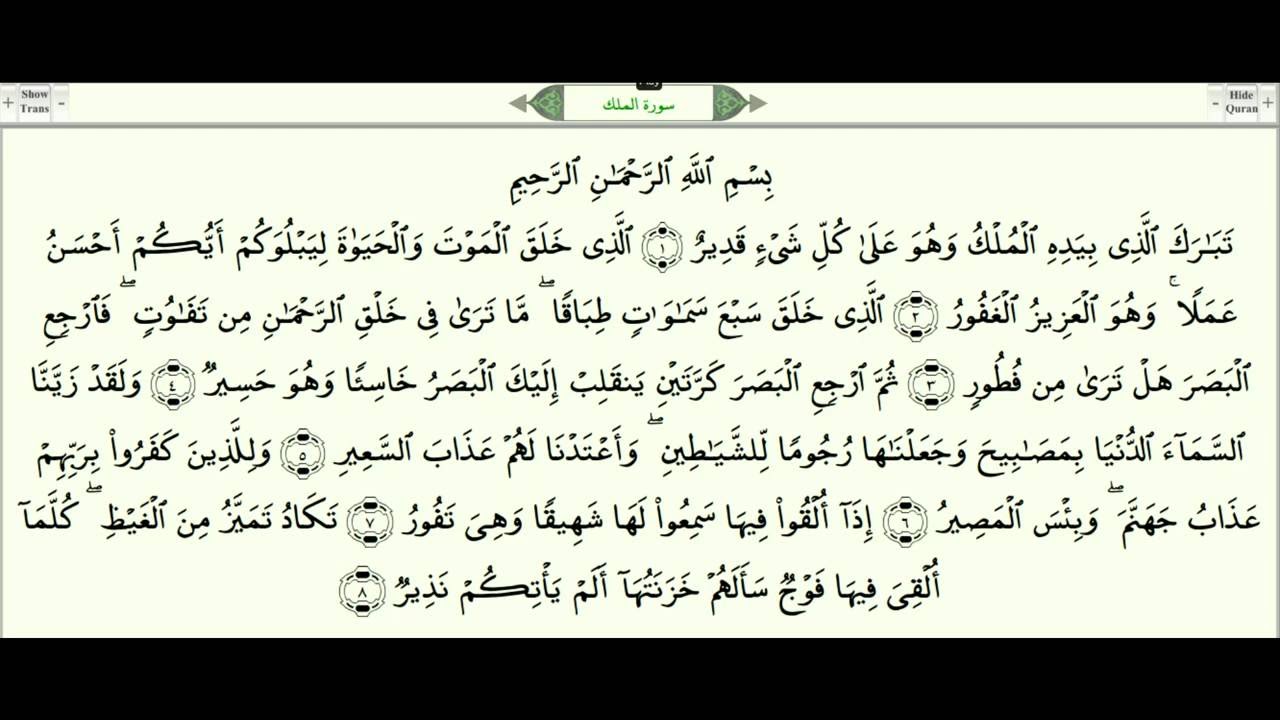 + Show Trans - سورة الملك - Hide Quran +
بِسْمِ ٱللَّهِ ٱلرَّحْمَٰنِ ٱلرَّحِيمِ
تَبَٰرَكَ ٱلَّذِى بِيَدِهِ ٱلْمُلْكُ وَهُوَ عَلَىٰ كُلِّ شَىْءٍ قَدِيرٌ ١ ٱلَّذِى خَلَقَ ٱلْمَوْتَ وَٱلْحَيَوٰةَ لِيَبْلُوَكُمْ أَيُّكُمْ أَحْسَنُ
عَمَلًا ۚ وَهُوَ ٱلْعَزِيزُ ٱلْغَفُورُ ٢ ٱلَّذِى خَلَقَ سَبْعَ سَمَٰوَٰتٍ طِبَاقًا ۖ مَّا تَرَىٰ فِى خَلْقِ ٱلرَّحْمَٰنِ مِن تَفَٰوُتٍ ۖ فَٱرْجِعِ
ٱلْبَصَرَ هَلْ تَرَىٰ مِن فُطُورٍ ٣ ثُمَّ ٱرْجِعِ ٱلْبَصَرَ كَرَّتَيْنِ يَنقَلِبْ إِلَيْكَ ٱلْبَصَرُ خَاسِئًا وَهُوَ حَسِيرٌ ٤ وَلَقَدْ زَيَّنَّا
ٱلسَّمَآءَ ٱلدُّنْيَا بِمَصَٰبِيحَ وَجَعَلْنَٰهَا رُجُومًا لِّلشَّيَٰطِينِ ۖ وَأَعْتَدْنَا لَهُمْ عَذَابَ ٱلسَّعِيرِ ٥ وَلِلَّذِينَ كَفَرُوا۟ بِرَبِّهِمْ
عَذَابُ جَهَنَّمَ ۖ وَبِئْسَ ٱلْمَصِيرُ ٦ إِذَآ أُلْقُوا۟ فِيهَا سَمِعُوا۟ لَهَا شَهِيقًا وَهِىَ تَفُورُ ٧ تَكَادُ تَمَيَّزُ مِنَ ٱلْغَيْظِ ۖ كُلَّمَآ
أُلْقِىَ فِيهَا فَوْجٌ سَأَلَهُمْ خَزَنَتُهَآ أَلَمْ يَأْتِكُمْ نَذِيرٌ ٨